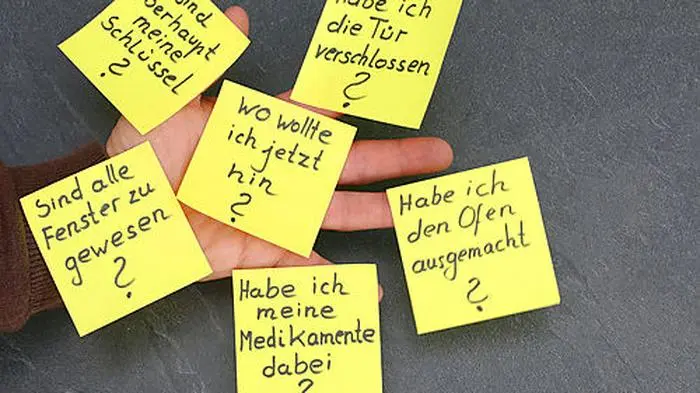 sind
überhaupt
meine
Schlüssel
?
Habe ich
die Tür
verschlossen
?
Wo wollte
ich jetzt
hin
?
Sind alle
Fenster zu
gewesen
?
Habe ich
den Ofen
ausgemacht
?
Habe ich
meine
Medikamente
dabei
?